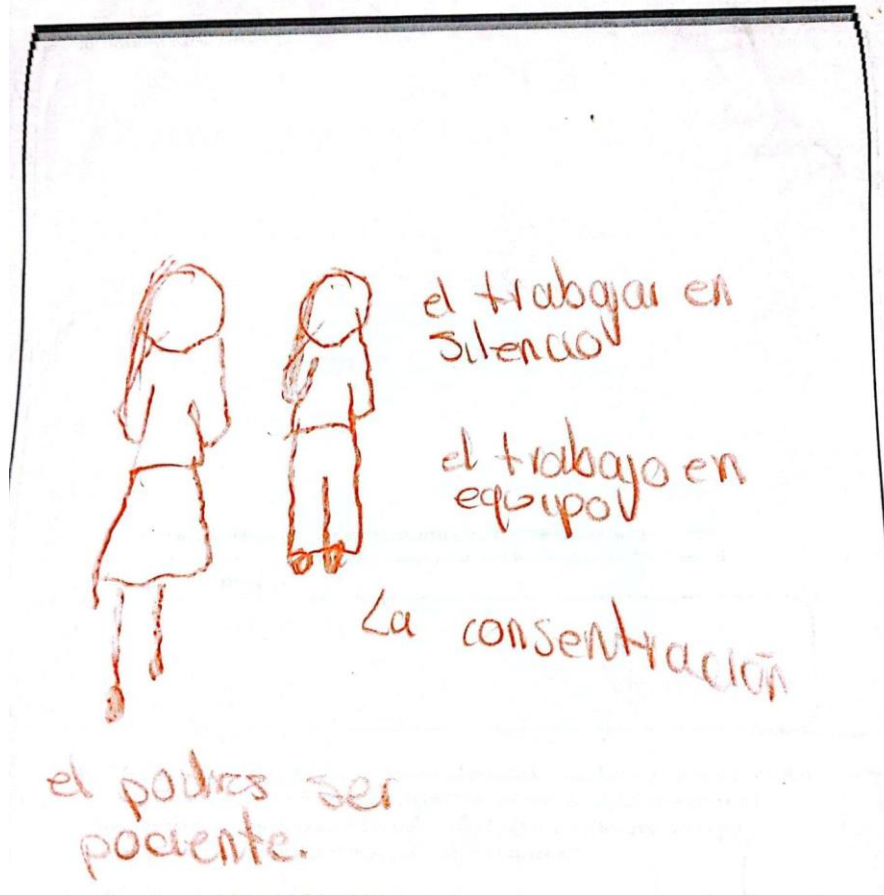 el trabajar en
silencio
el trabajo en
equipo
La consentración
el podres ser
paciente.